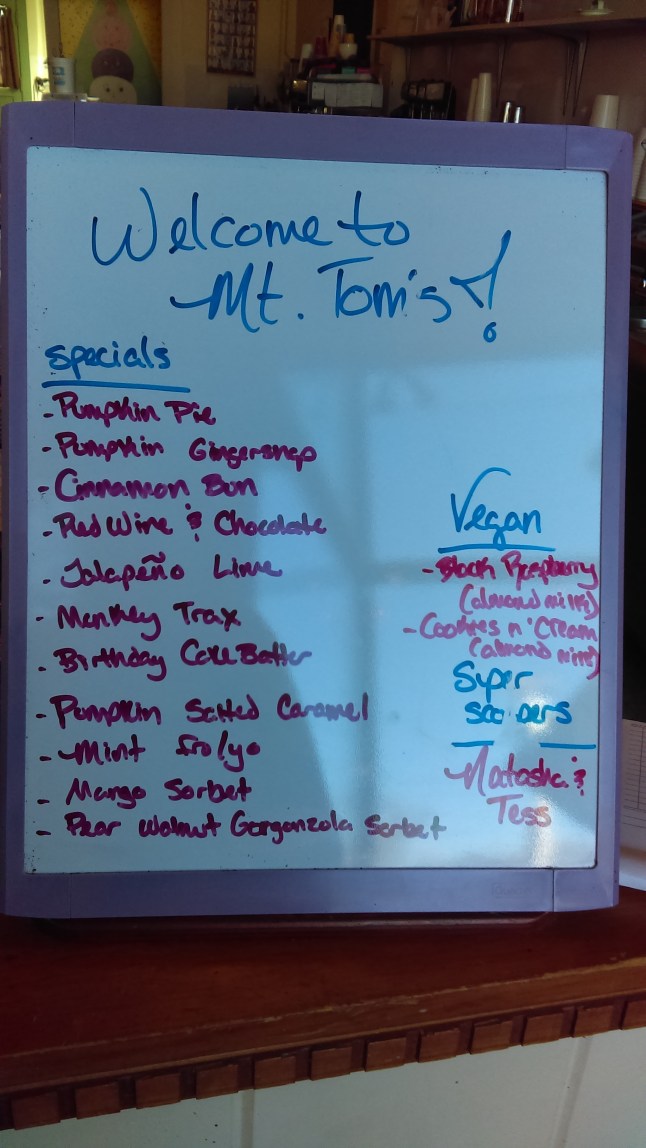 Welcome to
Mt. Tom's!
Specials
- Pumpkin Pie
- Pumpkin Gingersnap
- Cinnamon Bun
- Red Wine & Chocolate
- Jalapeño Lime
- Monkey Trax
- Birthday Cake Batter
- Pumpkin Salted Caramel
- Mint fro/yo
- Mango Sorbet
- Pear Walnut Gorgonzola Sorbet
Vegan
- Black Raspberry
(almond milk)
- Cookies n' Cream
(almond milk)
Super
scoopers
Natasha &
Tess